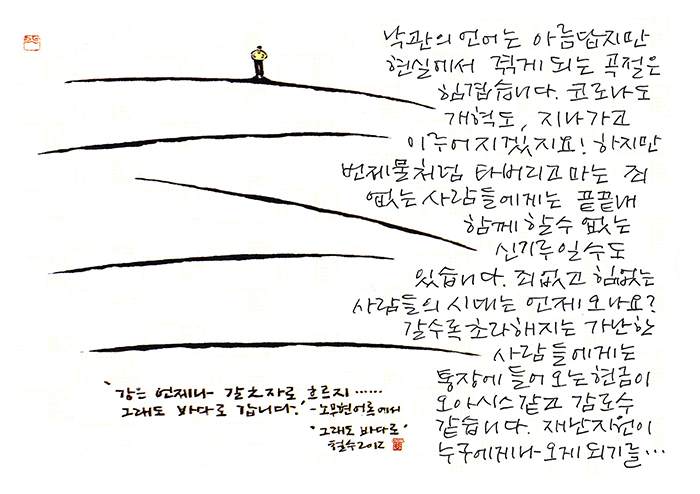 낙관의 언어는 아름답지만
현실에서 쥐게 되는 곡절은
힘겹습니다. 코로나도
개혁도, 지나가고
이루어지겠지요! 하지만
번제물처럼 타버리고 마는 죄
없는 사람들에게는 끝끝내
함께 할 수 없는
신기루일 수도
있습니다. 죄없고 힘없는
사람들의 시대는 언제 오나요?
갈수록 초라해지는 가난한
사람들에게는
통장에 들어오는 현금이
오아시스 같고 감로수
같습니다. 재난지원이
누구에게나 오게 되기를...
'강은 언제나 갈 之자로 흐르지......
그래도 바다로 갑니다.' -노무현 어록에서
'그래도 바다로'
철수 2012